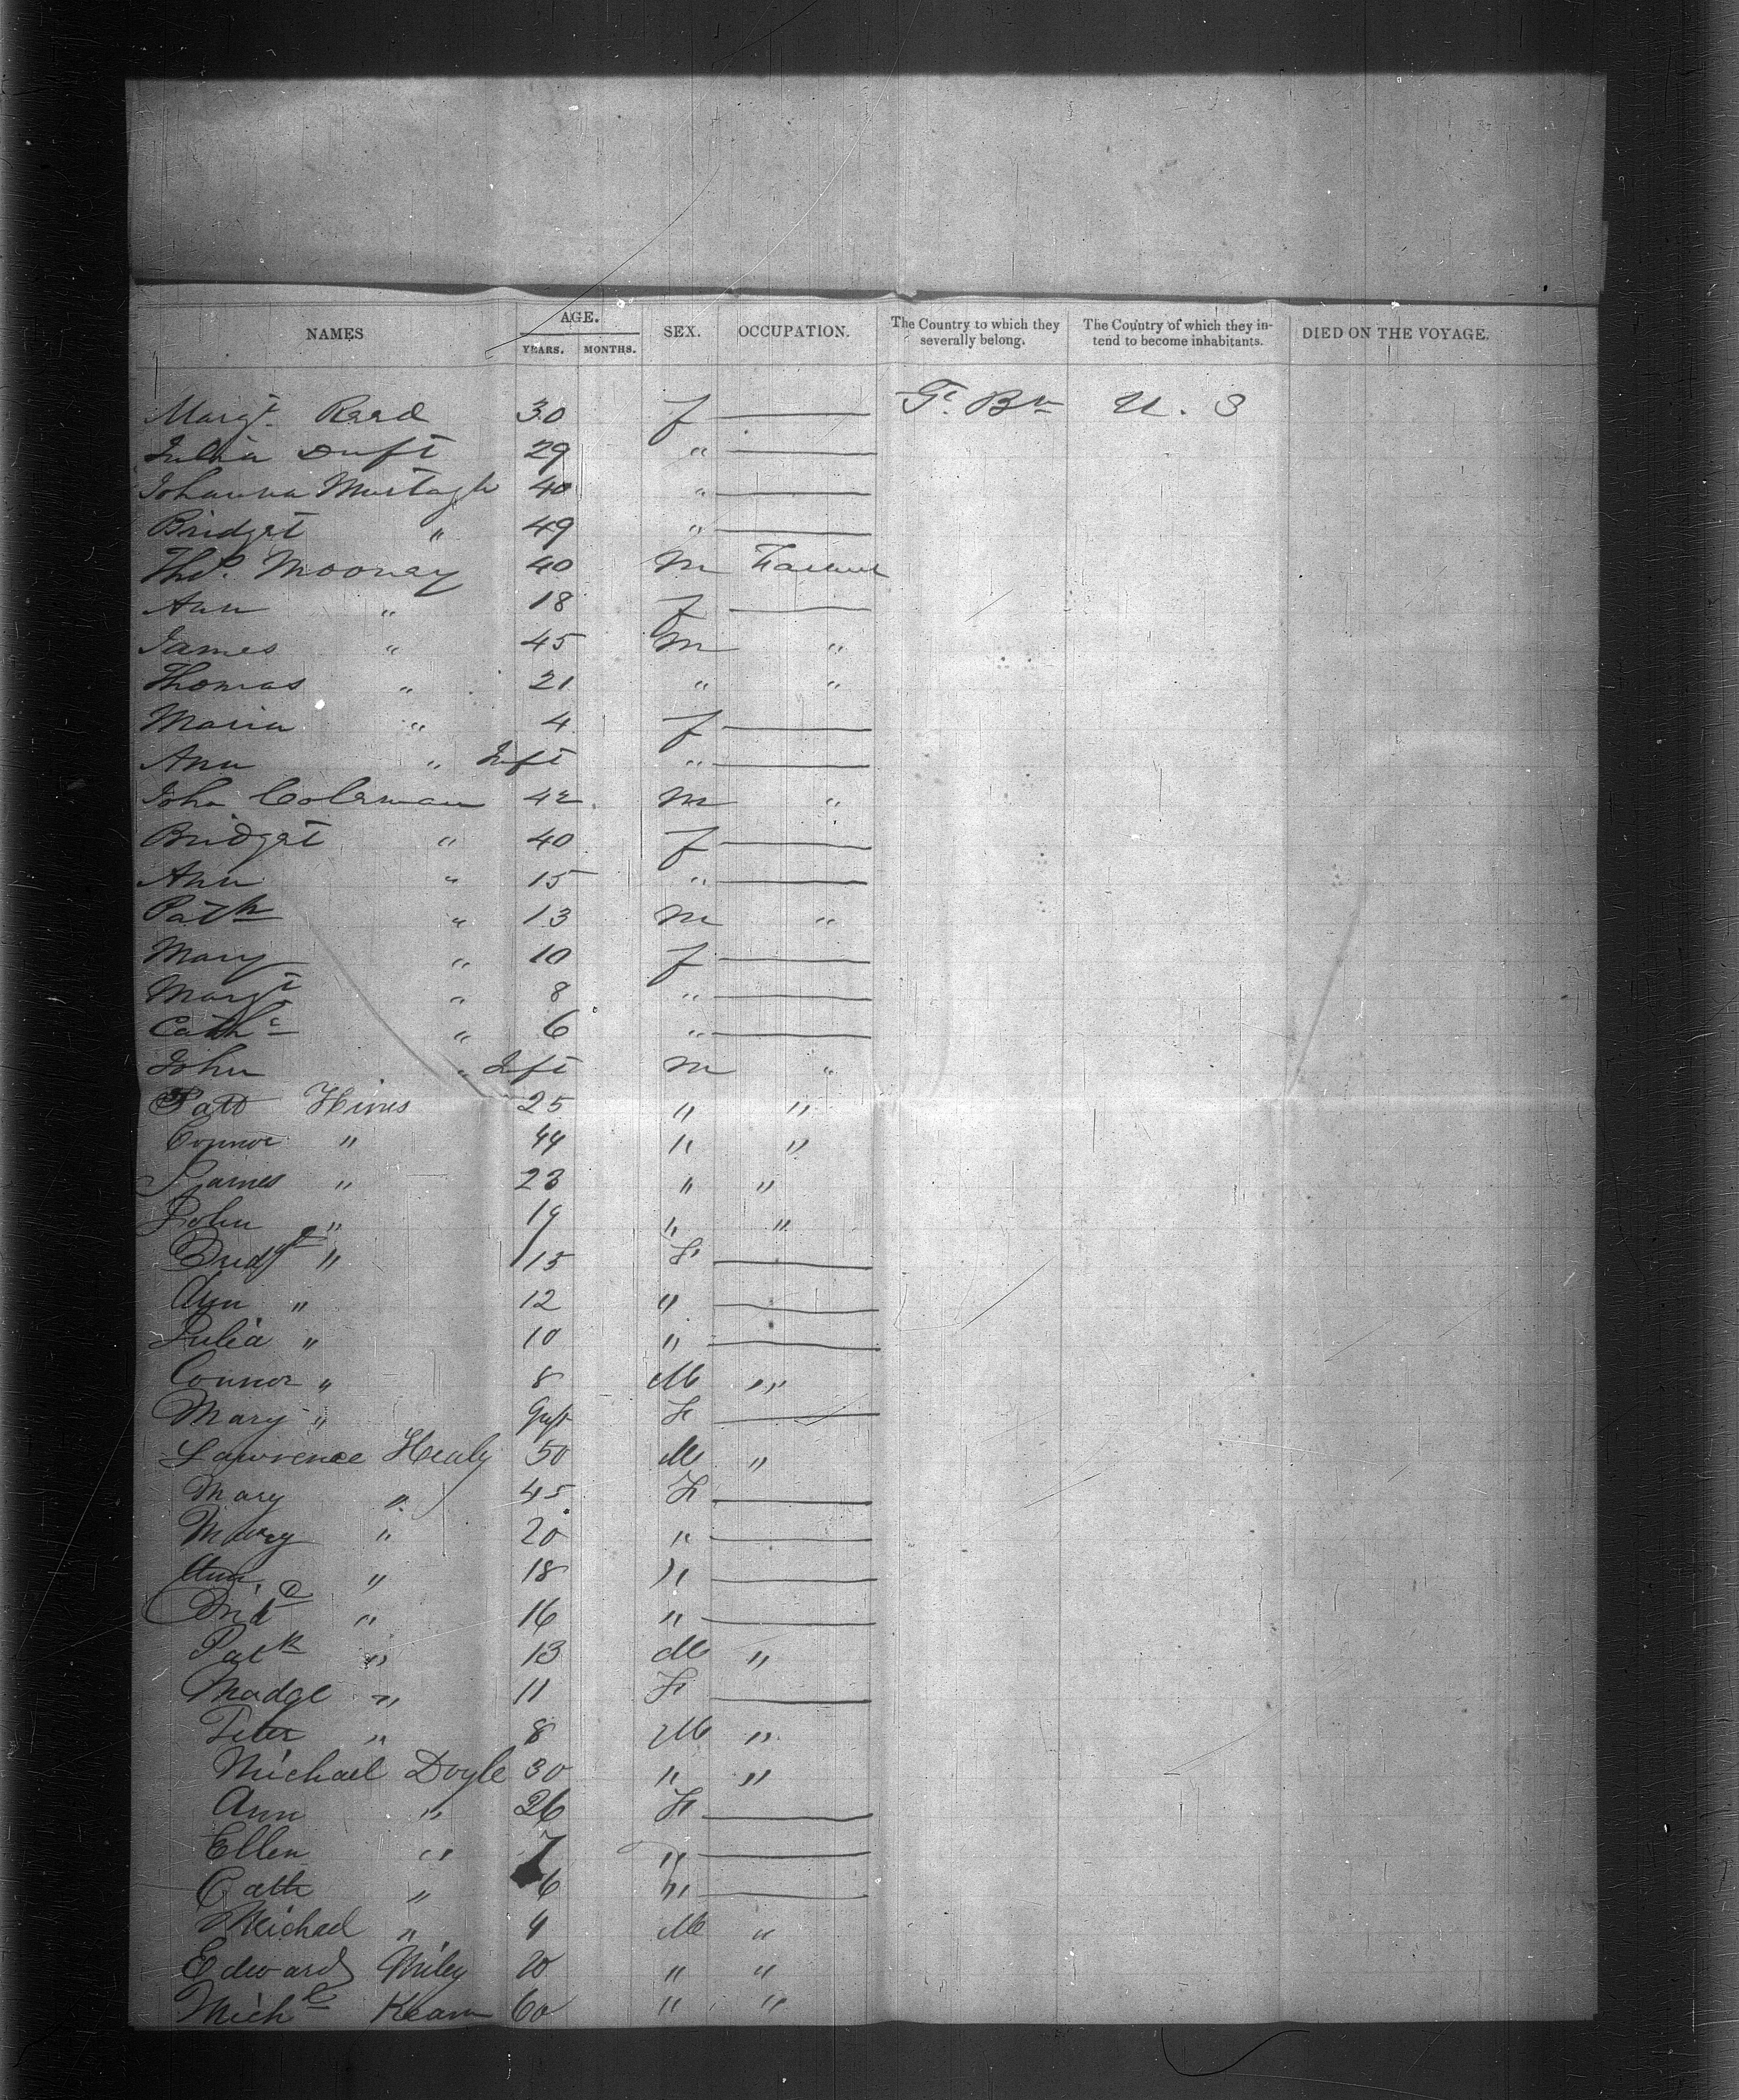 NAMES AGE. YEARS. MONTHS. SEX. OCCUPATION. The Country to which they severally belong. The Country of which they intend to become inhabitants. DIED ON THE VOYAGE.
Margt. Read 30 f — Gt. Bn U. S
Julia Duft 29 " —
Johanna Murtagh 40 " —
Bridget " 49 " —
Tho. Mooney 40 M Farmer
Ann " 18 f —
James " 45 M "
Thomas " 21 " "
Maria " 4 f —
Ann " Inft " —
John Coleman 42 M "
Bridget " 40 f —
Ann " 15 " —
Patk " 13 M "
Mary " 10 f —
Margt " 8 " —
Cathe " 6 " —
John " Inft M "
Patt Hines 25 " "
Connor " 44 " "
James " 23 " "
John " 19 " "
Bridgt " 15 F —
Ann " 12 " —
Julia " 10 " —
Connor " 8 M "
Mary " Inft F —
Lawrence Healy 50 M "
Mary " 45 F —
Mary " 20 " —
Ann " 18 " —
Brid " 16 " —
Patk " 13 M "
Madge " 11 F —
Peter " 8 M "
Michael Doyle 30 " "
Ann " 26 F —
Ellen " 7 " —
Cath " 6 " —
Michael " 4 M "
Edward Miley 20 " "
Michl Kean 60 " "